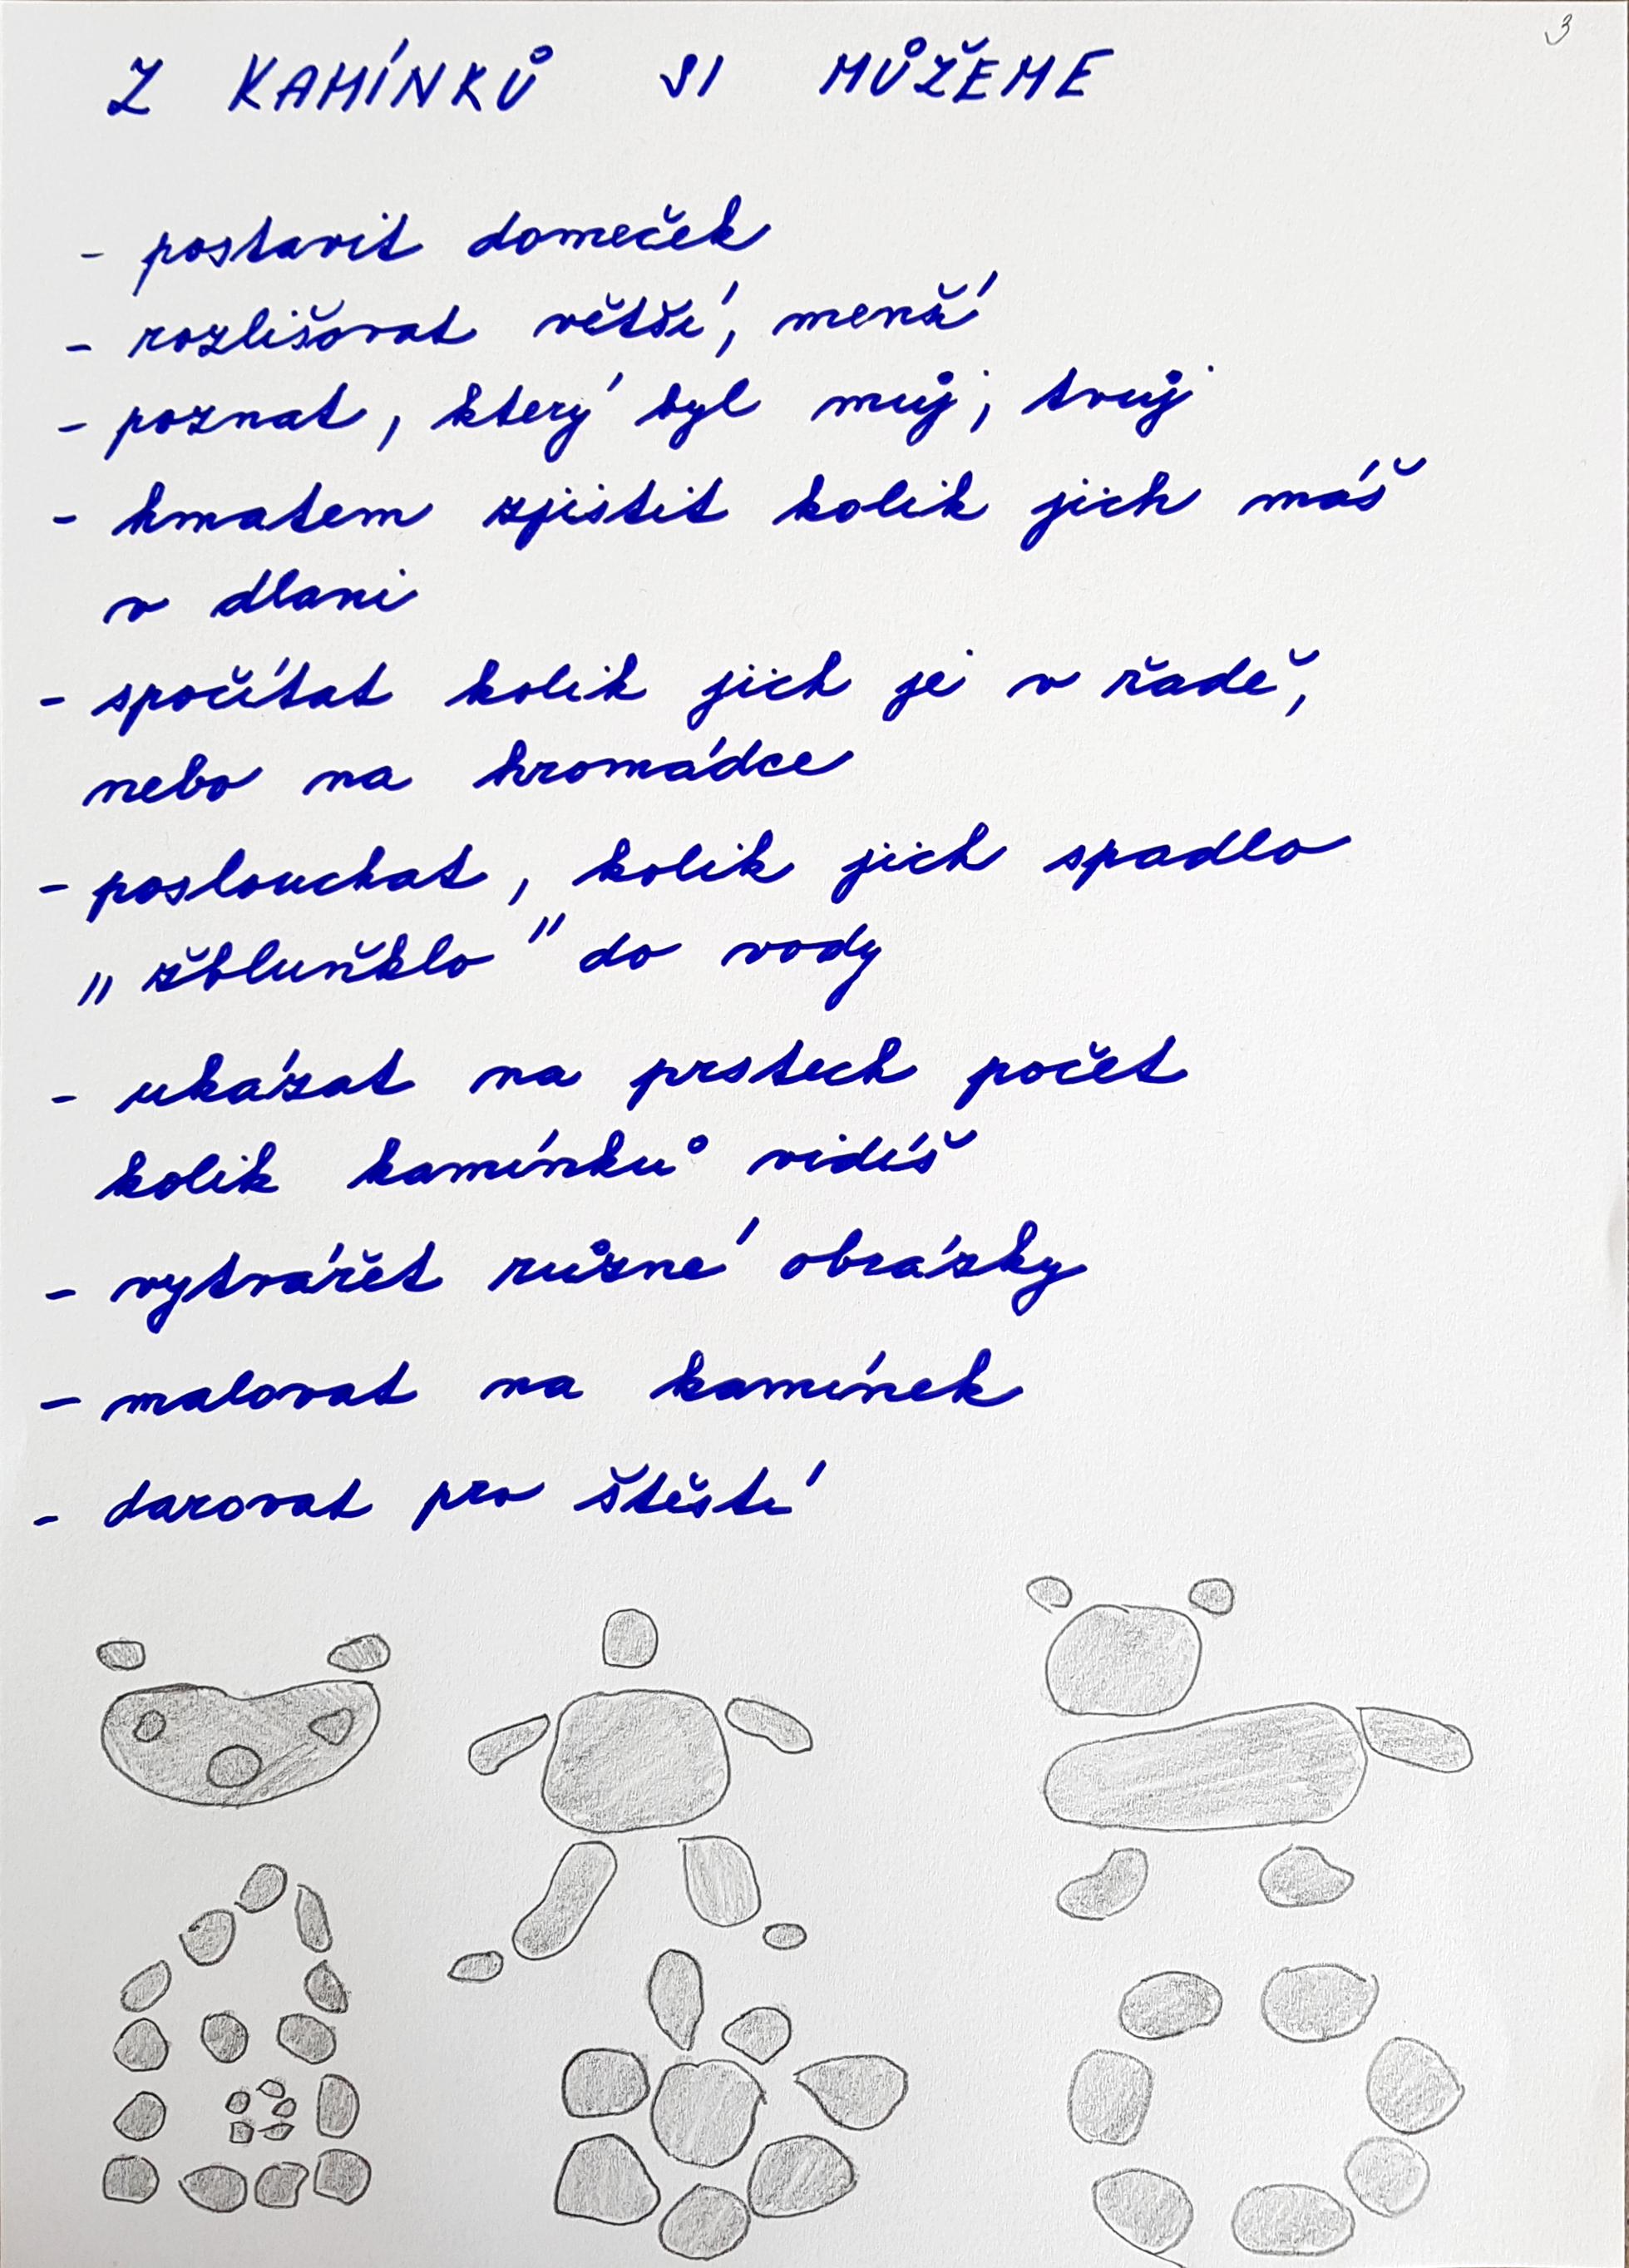 3
Z KAMÍNKŮ SI MŮŽEME
- postavit domeček
- rozlišovat větší, menší
- poznat, který byl můj, tvůj
- hmatem zjistit kolik jich máš
v dlani
- spočítat kolik jich je v řadě,
nebo na hromádce
- poslouchat, kolik jich spadlo
„žbluňklo" do vody
- ukázat na prstech počet
kolik kamínků vidíš
- vytvářet různé obrázky
- malovat na kamínek
- darovat pro štěstí